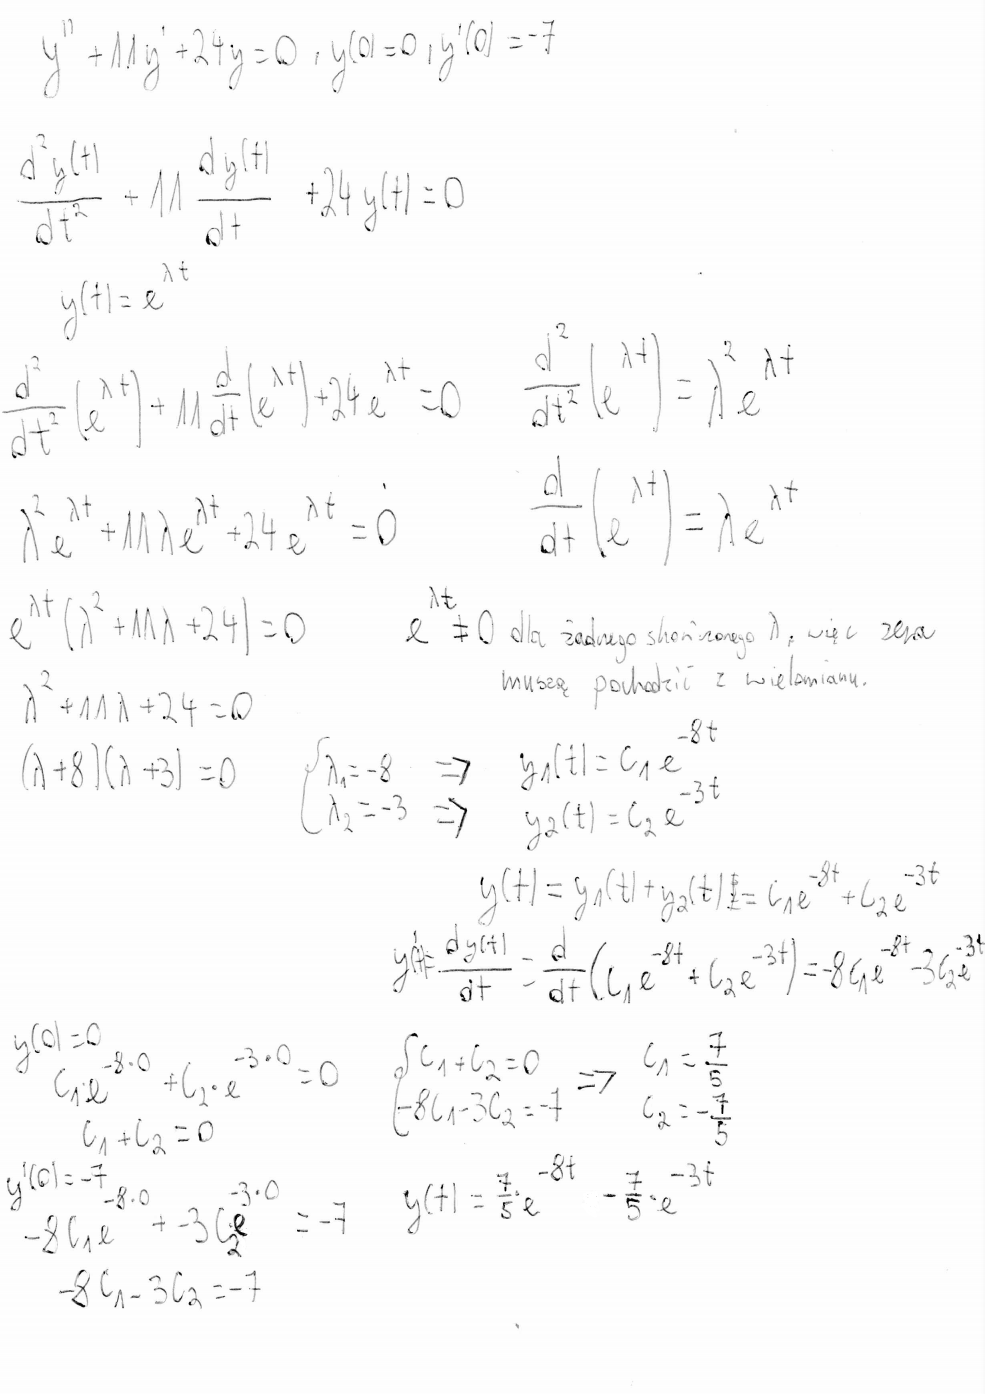 y'' + 11y' + 24y = 0 , y(0) = 0 , y'(0) = -7
d²y(t)/dt² + 11 dy(t)/dt + 24 y(t) = 0
y(t) = e^{λt}
d²/dt² (e^{λt}) + 11 d/dt (e^{λt}) + 24 e^{λt} = 0
d²/dt² (e^{λt}) = λ² e^{λt}
λ² e^{λt} + 11 λ e^{λt} + 24 e^{λt} = 0
d/dt (e^{λt}) = λ e^{λt}
e^{λt} (λ² + 11λ + 24) = 0
e^{λt} ≠ 0 dla żadnego skończonego λ, więc zera
muszą pochodzić z wielomianu.
λ² + 11λ + 24 = 0
(λ + 8)(λ + 3) = 0
{ λ₁ = -8 => y₁(t) = C₁ e^{-8t}
λ₂ = -3 => y₂(t) = C₂ e^{-3t}
y(t) = y₁(t) + y₂(t) = C₁ e^{-8t} + C₂ e^{-3t}
y'(t) = dy(t)/dt = d/dt (C₁ e^{-8t} + C₂ e^{-3t}) = -8C₁ e^{-8t} - 3C₂ e^{-3t}
y(0) = 0
C₁·e^{-8·0} + C₂·e^{-3·0} = 0
C₁ + C₂ = 0
{ C₁ + C₂ = 0
-8C₁ - 3C₂ = -7 =>
C₁ = 7/5
C₂ = -7/5
y'(0) = -7
-8C₁ e^{-8·0} + -3C₂ e^{-3·0} = -7
-8C₁ - 3C₂ = -7
y(t) = 7/5·e^{-8t} - 7/5·e^{-3t}